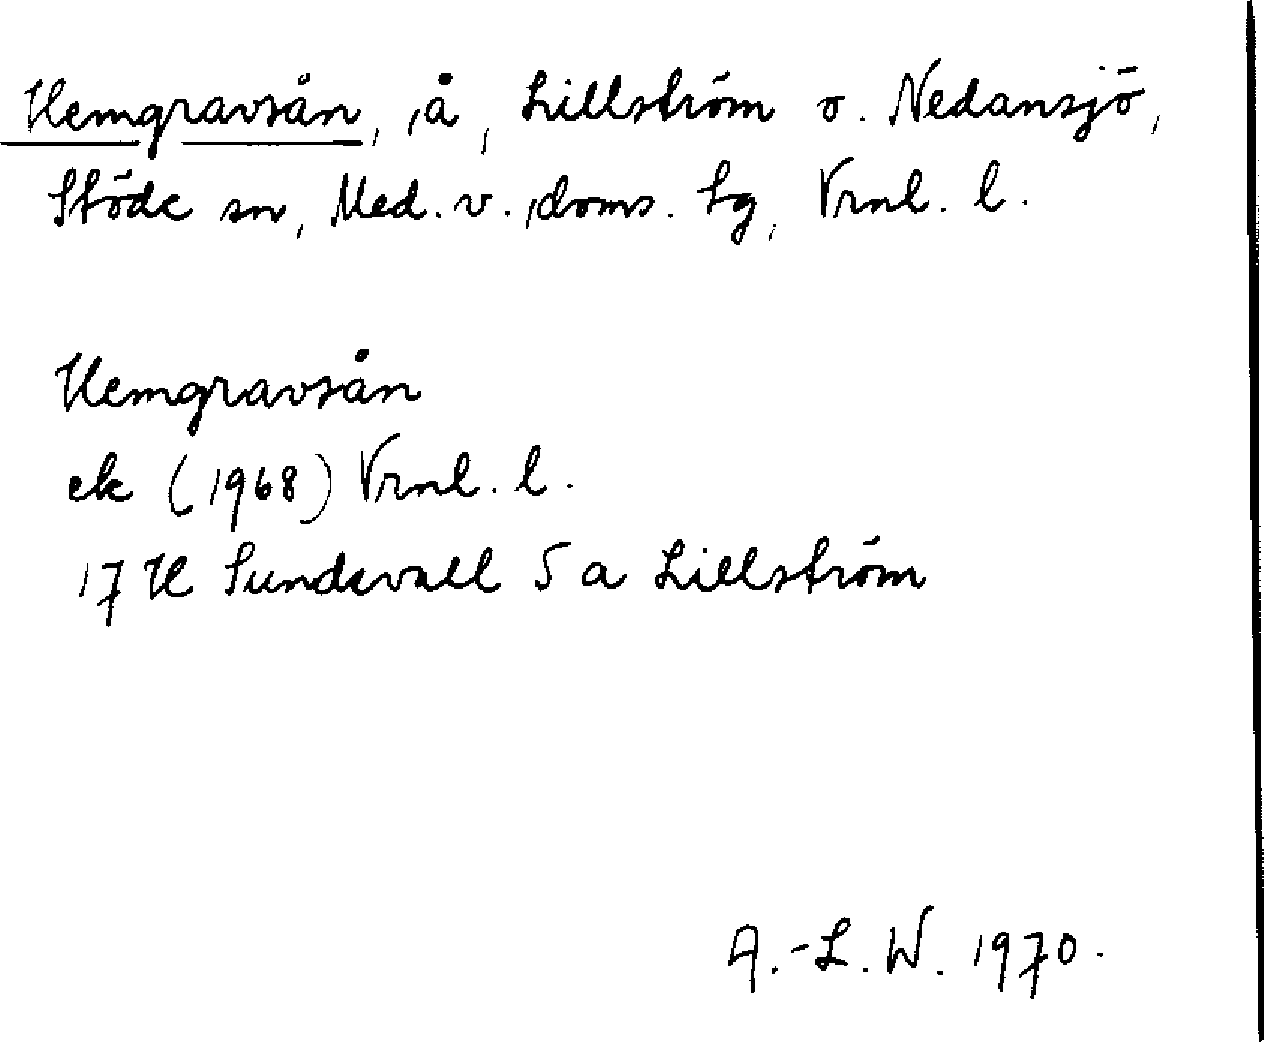 Hemgravsån, å, Lillström o. Nedansjö,
Stöde sn, Med. v. doms. tg, Vrnl. l.
Hemgravsån
ek (1968) Vrnl. l.
17 H Sundsvall 5 a Lillström
A.-L. W. 1970.